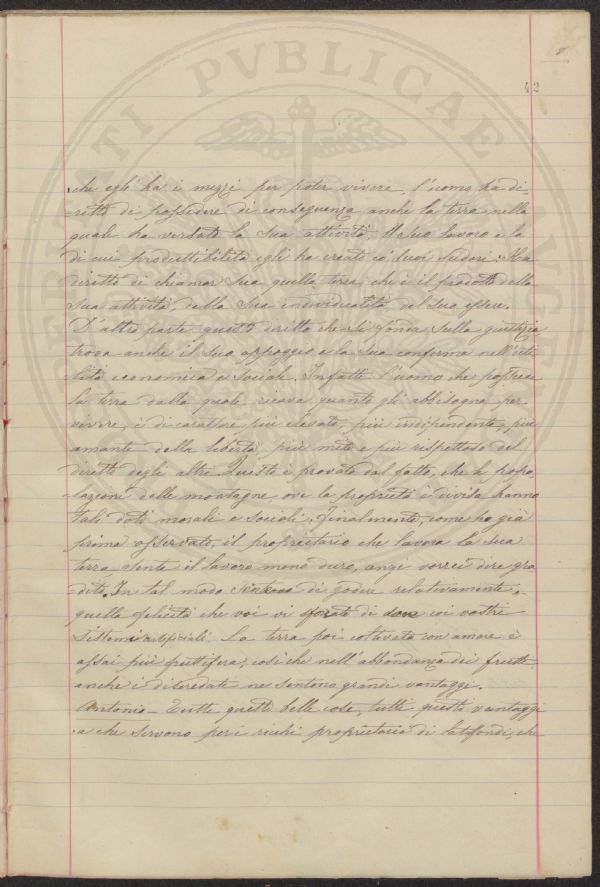 42
che egli ha i mezzi per poter vivere, l'uomo ha di-
ritto di possedere di conseguenza anche la terra nella
quale ha versato la sua attività, il suo lavoro e la
di cui produttibilità egli ha creato co' suoi sudori. Ha
diritto di chiamar sua quella terra, che è il prodotto della
sua attività, della sua individualità del suo essere.
D'altra parte questo diritto che si fonda sulla giustizia
trova anche il suo appoggio e la sua conferma nell'uti-
lità economica e sociale. Infatti l'uomo che possiede
la terra dalla quale ricava quanto gli abbisogna per
vivere, è di carattere più elevato, più indipendente, più
amante della libertà, più mite e più rispettoso del
diritto degli altri. Questo è provato dal fatto, che le popo
lazioni delle montagne ove la proprietà è divisa hanno
tali doti morali e sociali. Finalmente, come ho già
prima osservato, il proprietario che lavora la sua
terra sente il lavoro meno duro, anzi vorrei dire gra
dito. In tal modo di godere relativamente
quella felicità che voi vi sforzate di coi vostri
sistemi La terra poi coltivata con amore è
assai più fruttifera, così che nell'abbondanza dei frutti
anche i diseredati ne sentono grandi vantaggi.
Antonio — Tutte queste belle cose, tutti questi vantaggi
a che servono per i ricchi proprietari di latifondi, che
PVBLICAE